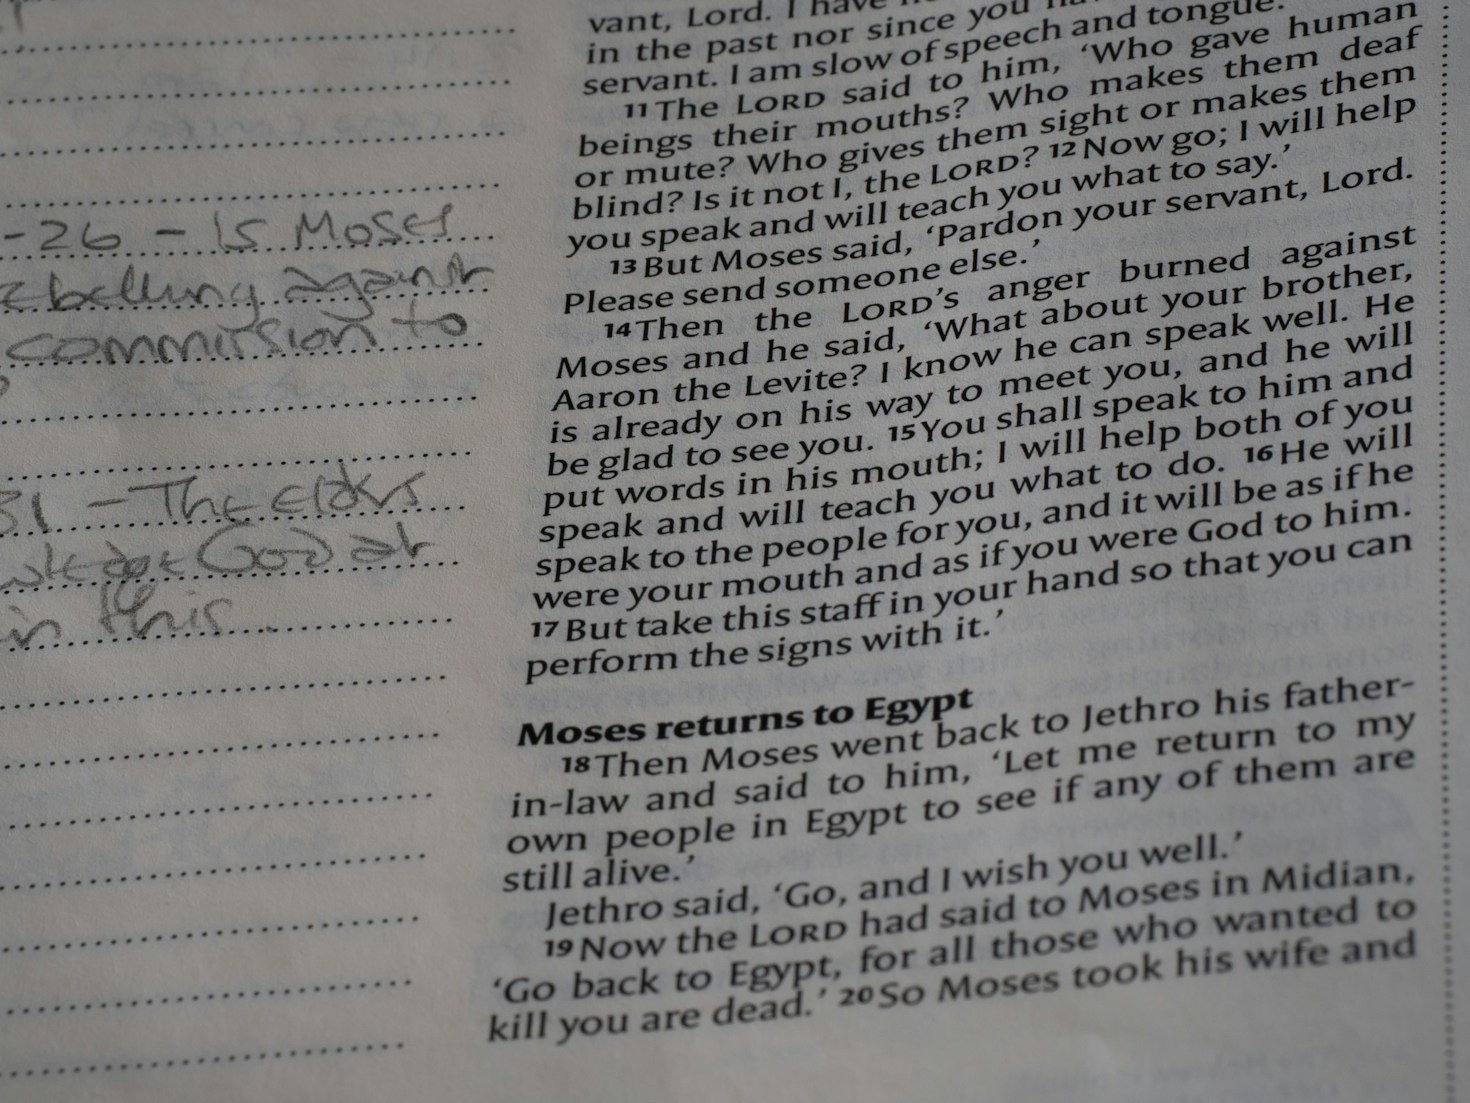 -26 - Is Moses
against
commission to
31 - The elders
God at
in this
vant, Lord. I have
in the past nor since you
servant. I am slow of speech and tongue.'
11 The LORD said to him, ‘Who gave human
beings their mouths? Who makes them deaf
or mute? Who gives them sight or makes them
blind? Is it not I, the LORD? 12 Now go; I will help
you speak and will teach you what to say.’
13 But Moses said, ‘Pardon your servant, Lord.
Please send someone else.’
14 Then the LORD’s anger burned against
Moses and he said, ‘What about your brother,
Aaron the Levite? I know he can speak well. He
is already on his way to meet you, and he will
be glad to see you. 15 You shall speak to him and
put words in his mouth; I will help both of you
speak and will teach you what to do. 16 He will
speak to the people for you, and it will be as if he
were your mouth and as if you were God to him.
17 But take this staff in your hand so that you can
perform the signs with it.’
Moses returns to Egypt
18 Then Moses went back to Jethro his father-
in-law and said to him, ‘Let me return to my
own people in Egypt to see if any of them are
still alive.’
Jethro said, ‘Go, and I wish you well.’
19 Now the LORD had said to Moses in Midian,
‘Go back to Egypt, for all those who wanted to
kill you are dead.’ 20 So Moses took his wife and